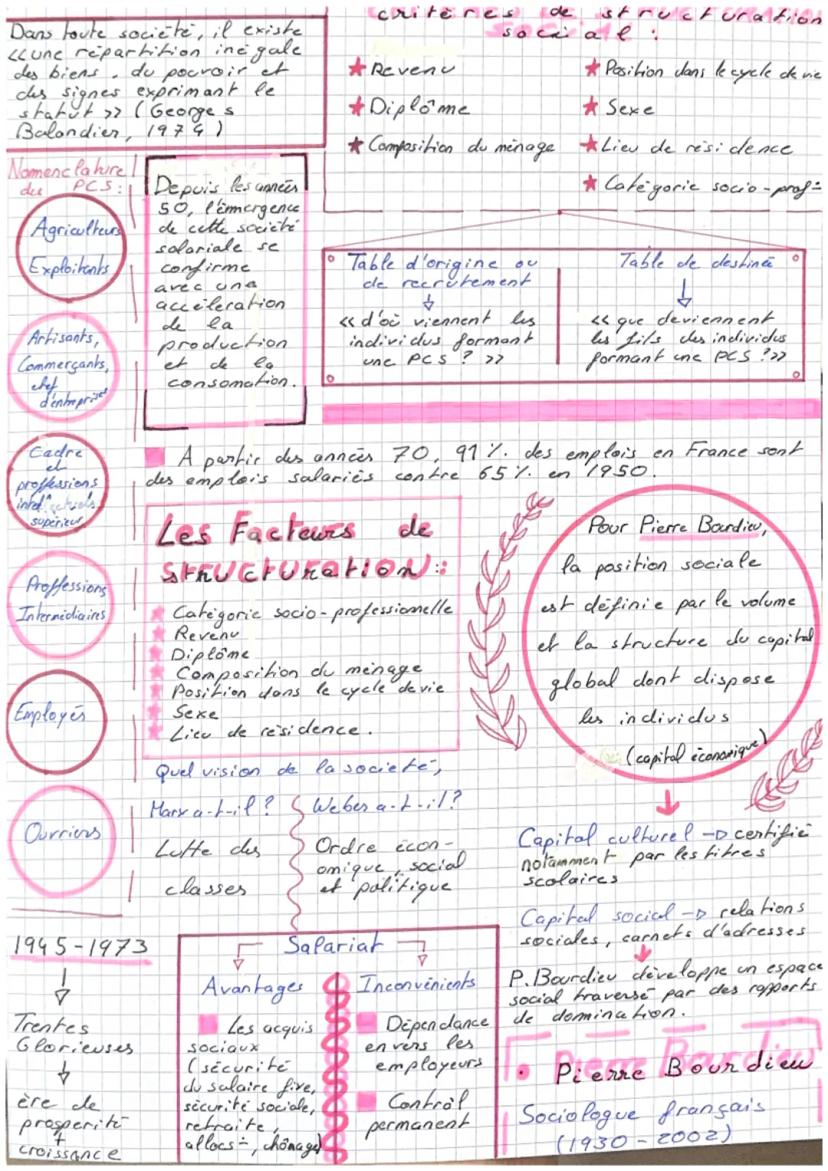 Dans toute société, il existe
<< une répartition inégale
des biens, du pouvoir et
des signes exprimant le
statut >> (Georges
Balandier, 1974)
critères de structuration
sociale :
★ Revenu
★ Diplôme
★ Composition du ménage
★ Position dans le cycle de vie
★ Sexe
★ Lieu de résidence
★ Catégorie socio-prof=
Nomenclature
des PCS :
Agriculteurs
Exploitants
Artisants,
Commerçants,
chef
d'entreprise
Cadre
et
proffessions
intellectuels
supérieur
Proffessions
Intermédiaires
Employés
Ouvriers
Depuis les années
50, l'émergence
de cette société
salariale se
confirme
avec une
accélération
de la
production
et de la
consomation.
Table d'origine ou
de recrutement
↓
<< d'où viennent les
individus formant
une PCS ? >>
Table de destinée
↓
<< que deviennent
les fils des individus
formant une PCS ? >>
A partir des années 70, 91 %. des emplois en France sont
des emplois salariés contre 65 %. en 1950.
Les Facteurs de
structuration :
★ Catégorie socio-professionnelle
★ Revenu
★ Diplôme
★ Composition du ménage
★ Position dans le cycle de vie
★ Sexe
★ Lieu de résidence.
Pour Pierre Bourdieu,
la position sociale
est définie par le volume
et la structure du capital
global dont dispose
les individus
(capital économique)
↓
Capital culturel → certifié
notamment par les titres
scolaires
Capital social → relations
sociales, carnets d'adresses
↓
P. Bourdieu développe un espace
social traversé par des rapports
de domination.
Quel vision de la société,
Marx a-t-il ?
Lutte des
classes
Weber a-t-il ?
Ordre écon-
omique, social
et politique
1945-1973
↓
Trentes
Glorieuses
↓
ère de
prosperité
+
croissance
Salariat
Avantages
Les acquis
sociaux
(sécurité
du salaire fixe,
sécurité sociale,
retraite,
allocs=, chômage)
Inconvénients
Dépendance
envers les
employeurs
Contrôl
permanent
• Pierre Bourdieu
Sociologue français
(1930 - 2002)